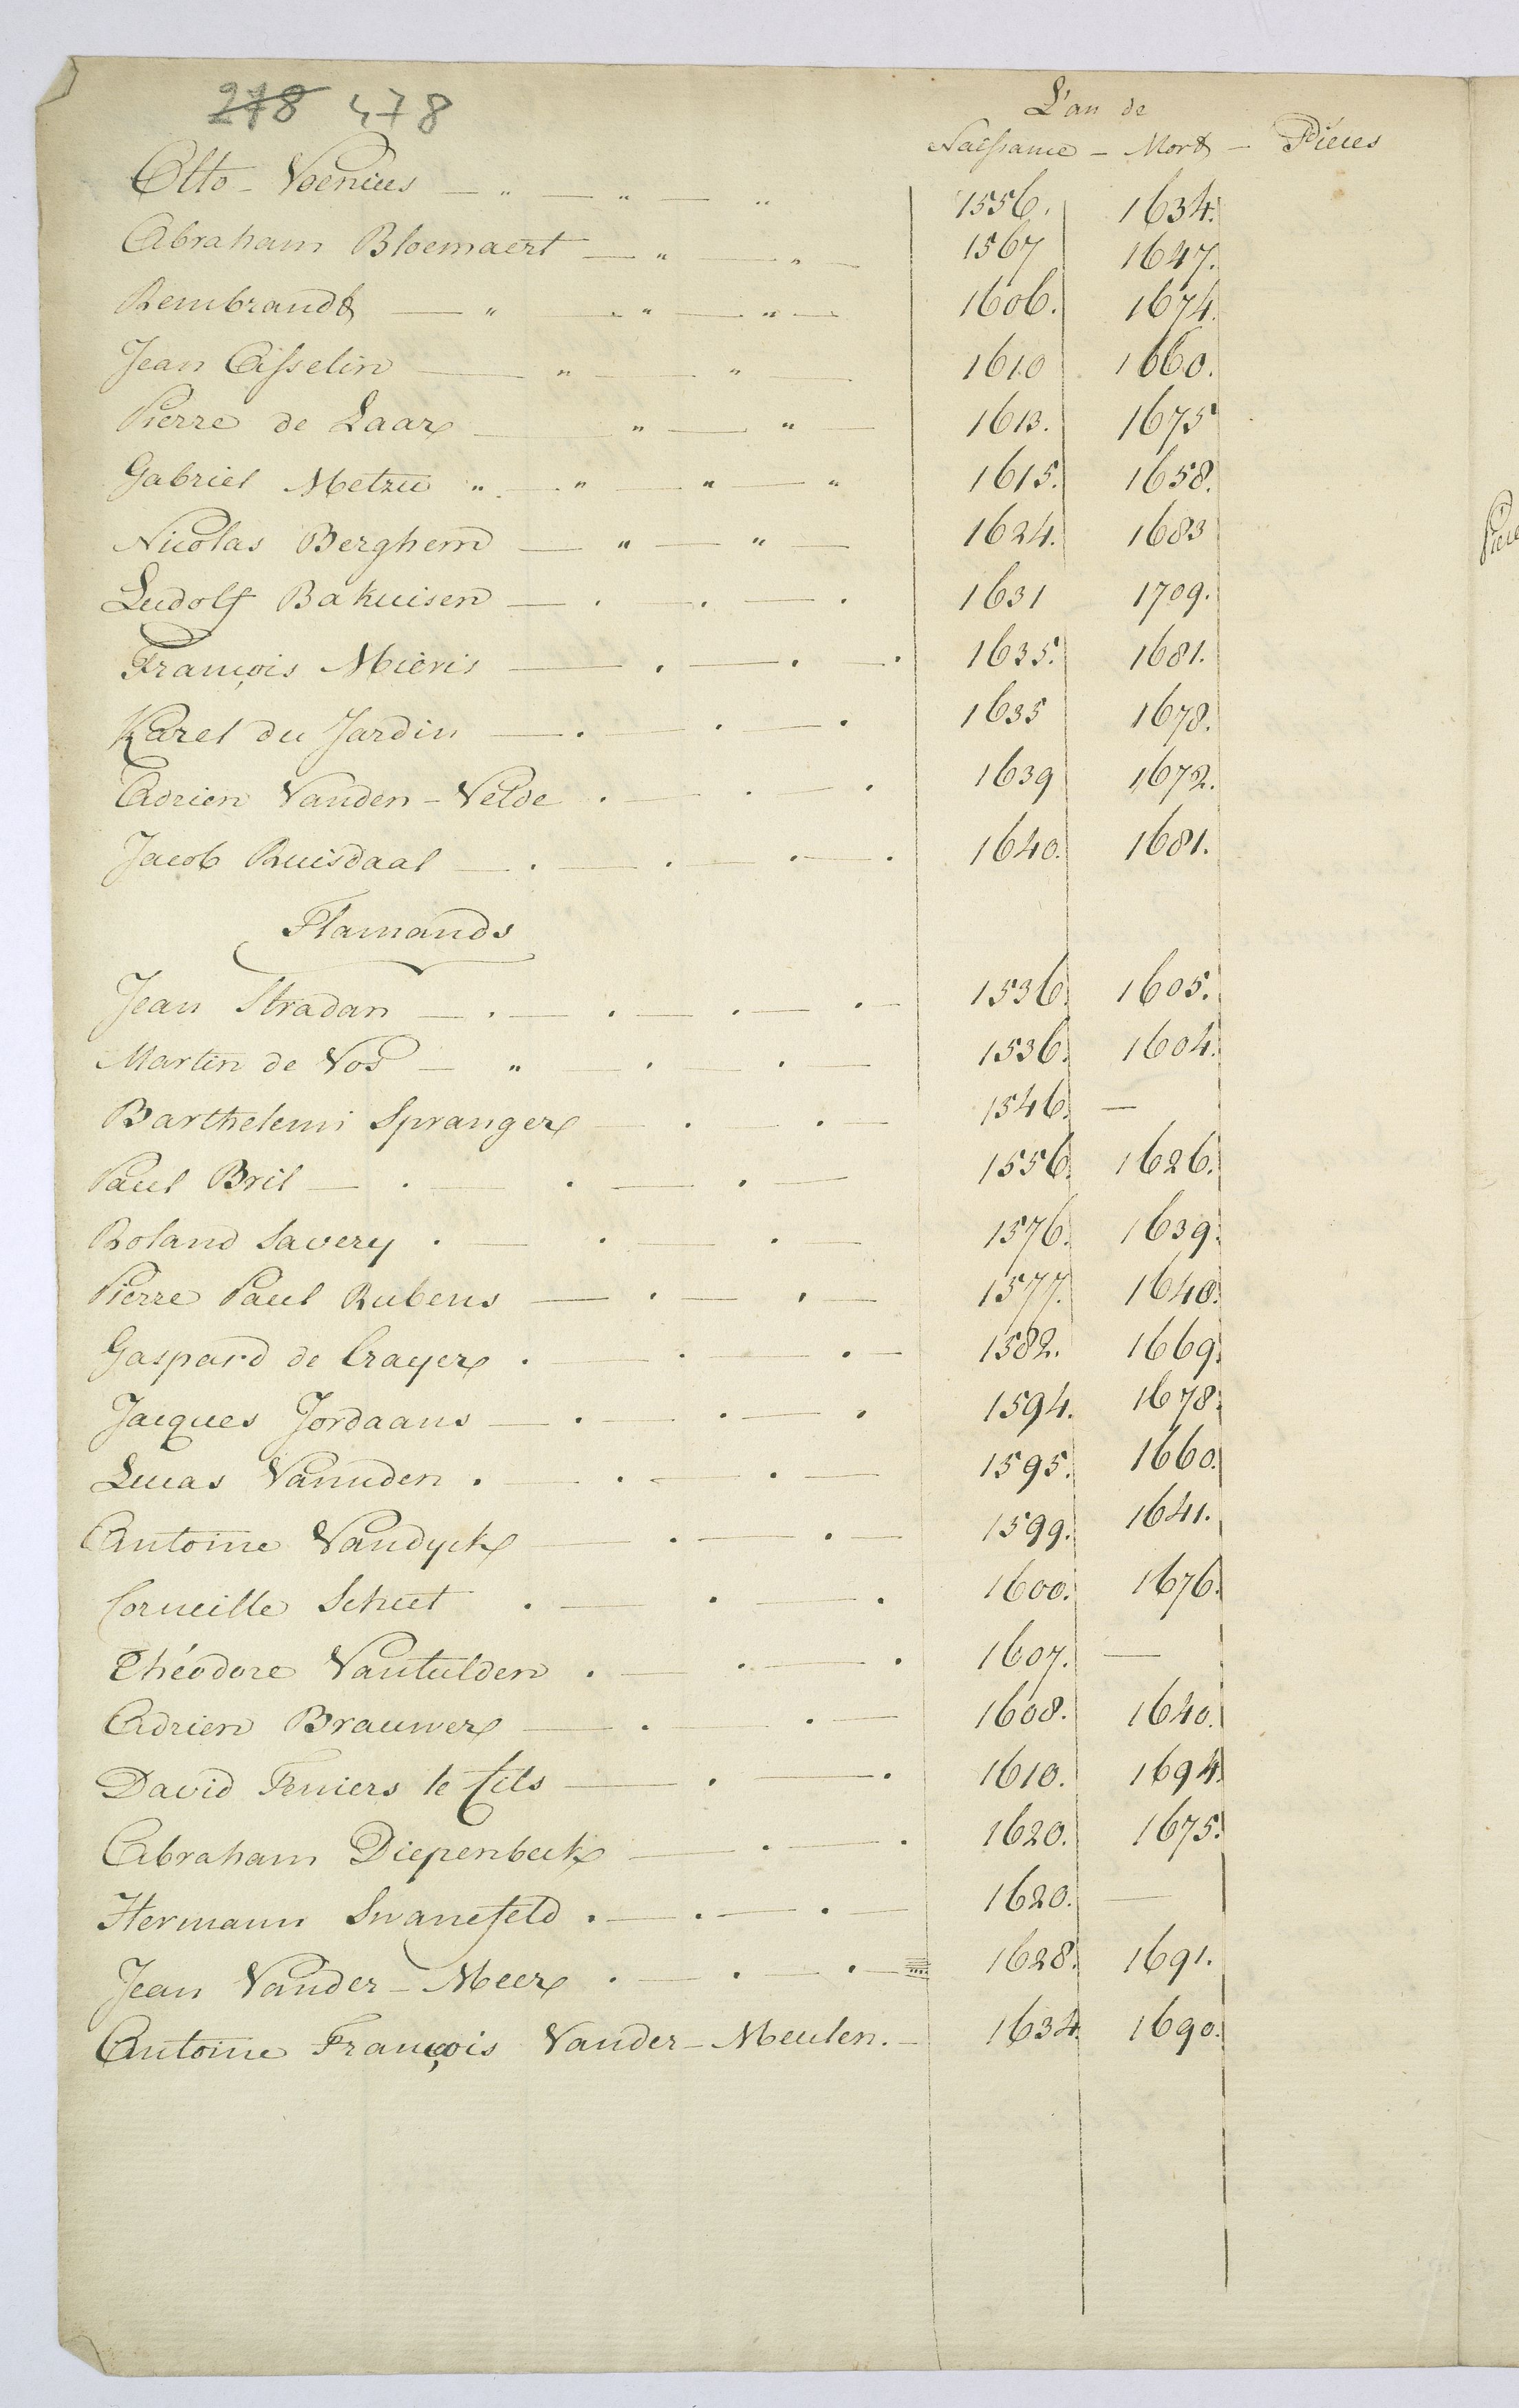 278 478
L'an de
Naissance - Mort - Piéces
Otto Voenius 1556. 1634.
Abraham Bloemaert 1567 1647.
Rembrandt 1606. 1674.
Jean Asselin 1610 1660.
Pierre de Laar 1613. 1675
Gabriel Metzu 1615. 1658.
Nicolas Berghem 1624. 1683
Ludolf Bakuisen 1631 1709.
François Miéris 1635. 1681.
Karel du Jardin 1635 1678.
Adrien Vanden-Velde 1639 1672.
Jacob Ruisdaal 1640. 1681.
Flamands
Jean Stradan 1536. 1605.
Martin de Vos 1536. 1604.
Barthelemi Spranger 1546. —
Paul Bril 1556. 1626.
Roland Savery 1576. 1639.
Pierre Paul Rubens 1577. 1640.
Gaspard de Crayer 1582. 1669.
Jacques Jordaans 1594. 1678.
Lucas Vanuden 1595. 1660.
Antoine Vandyck 1599. 1641.
Corneille Schut 1600. 1676.
Théodore Vantulden 1607. —
Adrien Brauwer 1608. 1640.
David Teniers le fils 1610. 1694.
Abraham Diepenbeck 1620. 1675.
Hermann Swanefeld 1620. —
Jean Vander-Meer 1628. 1691.
Antoine François Vander-Meulen. 1634. 1690.